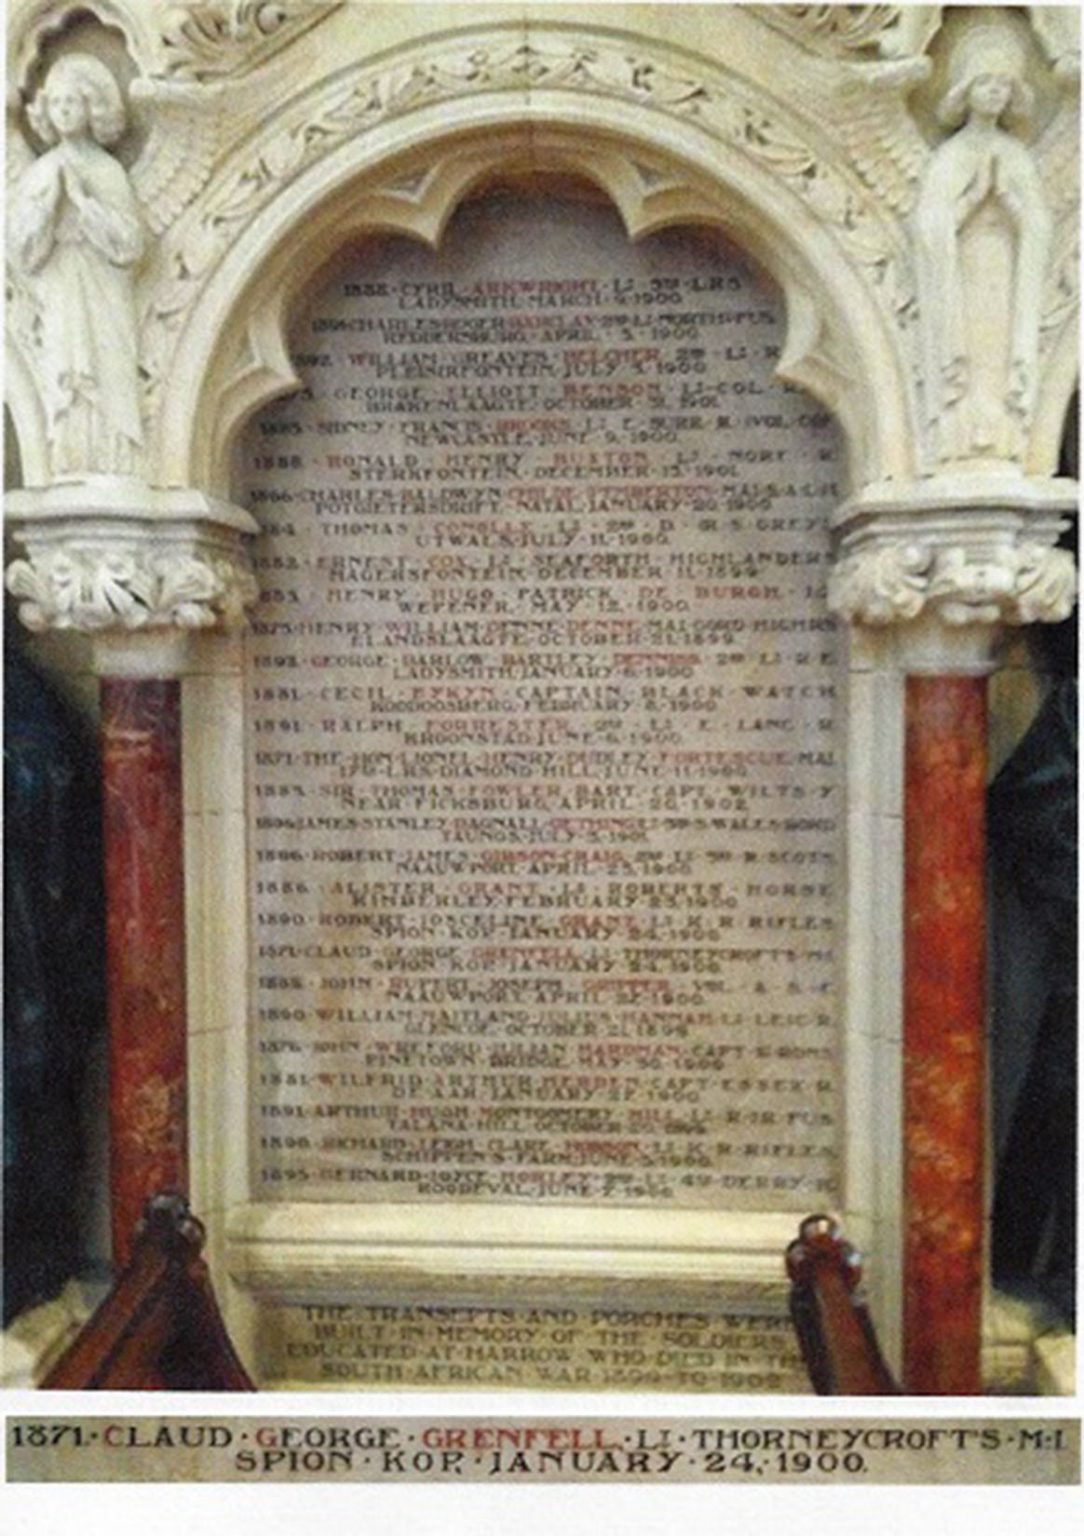 1888·CYRIL·ARKWRIGHT·LT·5TH·LRS
LADYSMITH·MARCH·9·1900
CHARLES·ROGER·BARCLAY·2ND·LT·NORTH·FUS
REDDERSBURG·APRIL·3·1900
1892·WILLIAM·GREAVES·BELCHER·2ND·LT·R
PLEISIRFONTEIN·JULY·3·1900
GEORGE·ELLIOTT·BENSON·LT-COL·R
BRAKENLAAGTE·OCTOBER·31·1901
1885·SIDNEY·FRANCIS·BROOKS·LT·E·SURR·R·(VOL·CO
NEWCASTLE·JUNE·9·1900
1888·RONALD·HENRY·BUXTON·LT·NORF·R
STERKFONTEIN·DECEMBER·13·1901
1866·CHARLES·BALDWYN·CHILDE·PEMBERTON·MAJ·S·A·L·H
POTGIETERSDRIFT·NATAL·JANUARY·20·1900
THOMAS·CONOLLY·LT·2ND·D·(R·S·GREYS
UTWALS·JULY·11·1900
1882·ERNEST·COX·LT·SEAFORTH·HIGHLANDERS
MAGERSFONTEIN·DECEMBER·11·1899
HENRY·HUGO·PATRICK·DE·BURGH·LT
WEPENER·MAY·12·1900
1875·HENRY·WILLIAM·DENNE-DENNE·MAJ·GORD·HIGHRS
ELANDSLAAGTE·OCTOBER·21·1899
1892·GEORGE·BARLOW·BARTLEY·DENNISS·2ND·LT·R·E
LADYSMITH·JANUARY·6·1900
1881·CECIL·EYKYN·CAPTAIN·BLACK·WATCH
KOODOOSBERG·FEBRUARY·8·1900
1891·RALPH·FORRESTER·2ND·LT·E·LANC·R
KROONSTAD·JUNE·6·1900
1871·THE·HON·LIONEL·HENRY·DUDLEY·FORTESCUE·MAJ
17TH·LRS·DIAMOND·HILL·JUNE·11·1900
1885·SIR·THOMAS·FOWLER·BART·CAPT·WILTS·Y
NEAR·FICKSBURG·APRIL·20·1902
1896·JAMES·STANLEY·BAGNALL·GETHING·LT·3RD·S·WALES·BORD
TAUNGS·JULY·5·1901
1886·ROBERT·JAMES·GIBSON-CRAIG·2ND·LT·3RD·R·SCOTS
NAAUWPORT·APRIL·25·1900
1886·ALISTER·GRANT·LT·ROBERTS·HORSE
KIMBERLEY·FEBRUARY·23·1900
1890·ROBERT·JOSCELINE·GRANT·LT·K·R·RIFLES
SPION·KOP·JANUARY·24·1900
1871·CLAUD·GEORGE·GRENFELL·LT·THORNEYCROFT'S·M·I
SPION·KOP·JANUARY·24·1900
1888·JOHN·RUPERT·JOSEPH·GRIPPER
NAAUWPORT·APRIL·27·1900
1890·WILLIAM·MAITLAND·JULIUS·HANNAH·LT·LEIC·R
GLENCOE·OCTOBER·21·1899
1876·JOHN·WREFORD·JULIAN·HARDMAN·CAPT
PINETOWN·BRIDGE·MAY·30·1900
1881·WILFRID·ARTHUR·HEBDEN·CAPT·ESSEX·R
DE·AAR·JANUARY·27·1900
1891·ARTHUR·HUGH·MONTGOMERY·HILL·LT·R·IR·FUS
TALANA·HILL·OCTOBER·20·1899
1890·RICHARD·LEIGH·CLARE·HOBSON·LT·K·R·RIFLES
SCHIPPEN'S·FARM·JUNE·3·1900
1895·BERNARD·JOYCE·HORLEY·2ND·LT·4TH·DERBY·R
ROODEVAL·JUNE·7·1900
THE·TRANSEPTS·AND·PORCHES·WERE
BUILT·IN·MEMORY·OF·THE·SOLDIERS
EDUCATED·AT·HARROW·WHO·DIED·IN·THE
SOUTH·AFRICAN·WAR·1899·TO·1902
1871·CLAUD·GEORGE·GRENFELL·LT·THORNEYCROFT'S·M·I
SPION·KOP,·JANUARY·24,·1900.